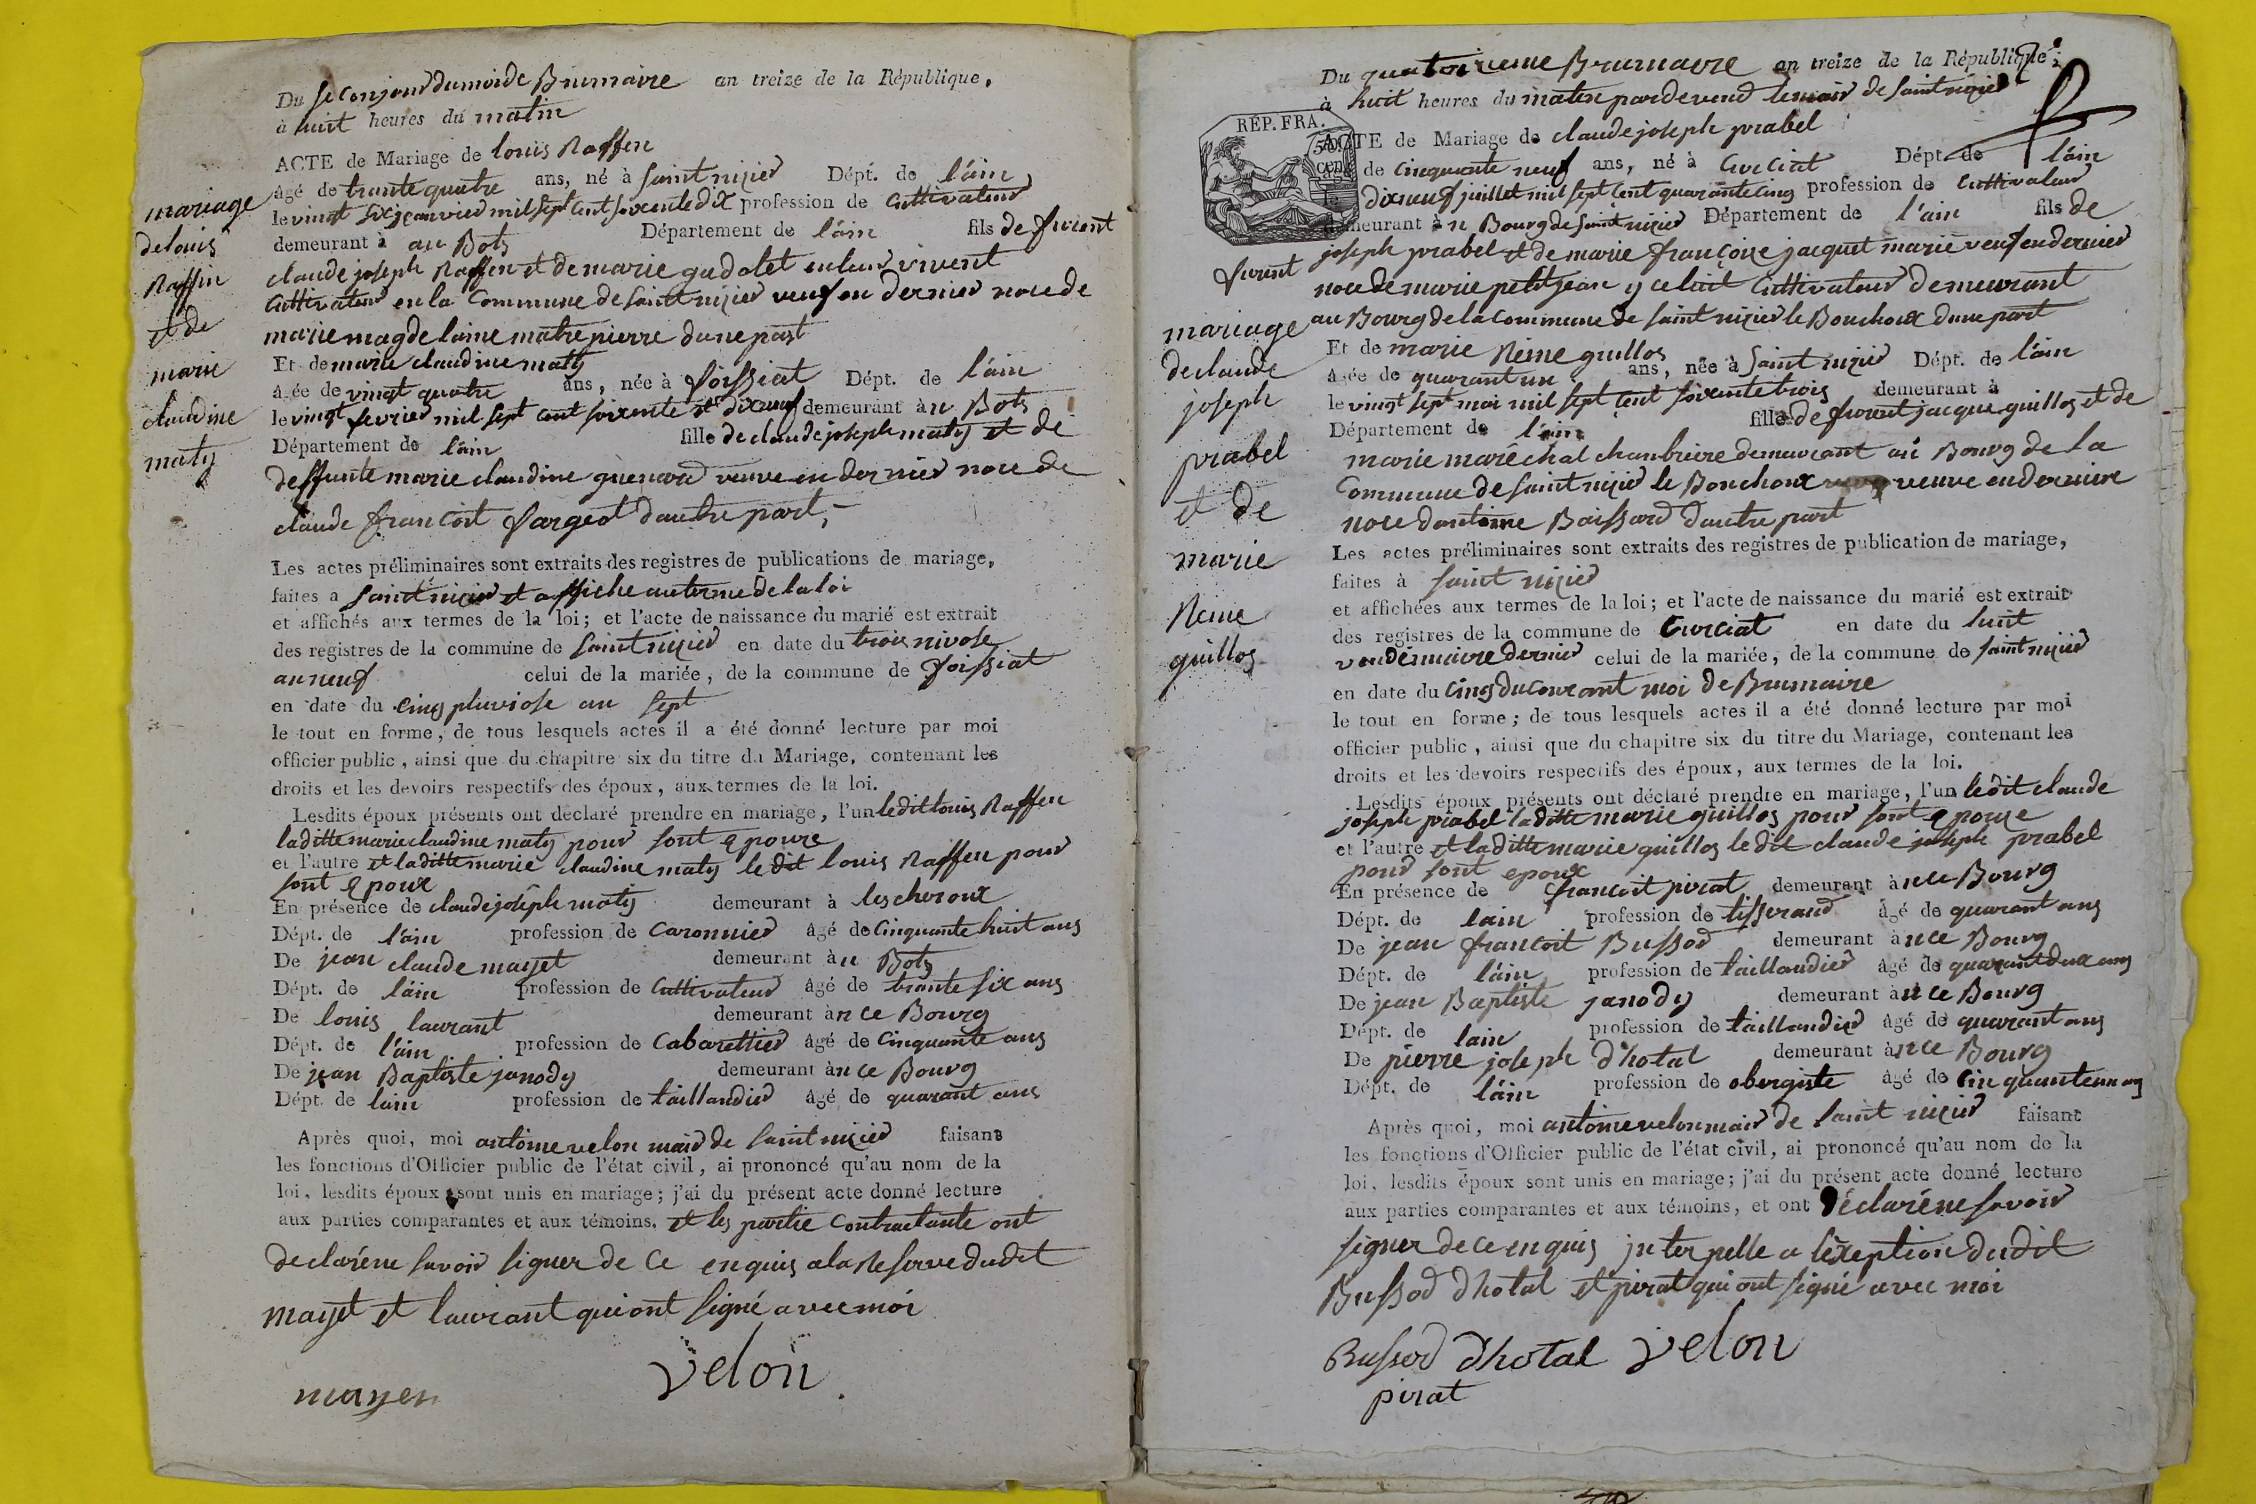 Du seconjour du mois de Brumaire an treize de la République,
à huit heures du matin
ACTE de Mariage de louis Raffin
âgé de trante quatre ans, né à saint nizier Dépt. de l'ain
le vingt six jeanvier mil sept cent soixente dix profession de Cuttivateur
demeurant à au Bots Département de l'ain fils de furent
claude joseph Raffin et de marie gadolet en leur vivent
Cuttivateur en la Commune de saint nizier veuf en dernier noce de
marie magdelaine maitrepierre dune part
Et de marie claudine maty
âgée de vingt quatre ans, née à foissiat Dépt. de l'ain
le vingt fevrier mil sept cent soixente et dix neuf demeurant à u Bots
Département de l'ain fille de claude joseph maty et de
deffunte marie claudine guenard veuve en dernier noce de
claude francoit fargeot dautre part,
Les actes préliminaires sont extraits des registres de publications de mariage,
faites a saint nizier et affiche au terme de la loi
et affichés aux termes de la loi; et l'acte de naissance du marié est extrait
des registres de la commune de saint nizier en date du trois nivose
an neuf celui de la mariée, de la commune de foissiat
en date du cinq pluviose an sept
le tout en forme, de tous lesquels actes il a été donné lecture par moi
officier public, ainsi que du chapitre six du titre du Mariage, contenant les
droits et les devoirs respectifs des époux, aux termes de la loi.
Lesdits époux présents ont déclaré prendre en mariage, l'un ledit louis Raffin
laditte marie claudine maty pour sont epouze
et l'autre et laditte marie claudine maty le dit louis Raffin pour
sont epoux
En présence de claude joseph maty demeurant à lescheroux
Dépt. de l'ain profession de Caronnier âgé de Cinquante huit ans
De jean claude mayet demeurant à u Bots
Dépt. de l'ain profession de Cuttivateur âgé de trante six ans
De louis laurant demeurant à n ce Bourg
Dépt. de l'ain profession de Cabarettier âgé de Cinquante ans
De jean Baptiste janody demeurant à n ce Bourg
Dépt. de lain profession de taillandier âgé de quarant ans
Après quoi, moi antoine velon maire de saint nizier faisant
les fonctions d'Officier public de l'état civil, ai prononcé qu'au nom de la
loi, lesdits époux sont unis en mariage; j'ai du présent acte donné lecture
aux parties comparantes et aux témoins, et les partie Contractante ont
declaréne savoir signer de Ce enquis a la Reserve dudit
mayet et laurant qui ont signé avec moi
velon
mayen
mariage
de louis
Raffin
et de
marie
claudine
maty
Du quatorzieme Brumaire an treize de la République
à huit heures du matin pardevend le maire de saint nizier
RÉP. FRA.
50
cen.
ACTE de Mariage de claude joseph prabel
âgé de Cinquante neuf ans, né à Curciat Dépt. de l'ain
dix neuf juillet mil sept cent quarante cinq profession de Cuttivateur
demeurant à n Bourg de saint nizier Département de l'ain fils de
furent joseph prabel et de marie françoise jacquet marie veuf en dernier
noce de marie petitjean y celuit Cuttivateur demeurant
au Bourg de la Commune de saint nizier le Bouchoux dune part
Et de marie Reine guillos
âgée de quarant un ans, née à saint nizier Dépt. de l'ain
le vingt sept mai mil sept cent soixente trois demeurant à
Département de l'ain fille de furent jacque guillos et de
marie maréchal chanbriere demeurant au Bourg de la
Commune de saint nizier le Bouchoux veuve en derniere
noce dantoine Boissard dautre part
Les actes préliminaires sont extraits des registres de publication de mariage,
faites à saint nizier
et affichées aux termes de la loi; et l'acte de naissance du marié est extrait
des registres de la commune de Curciat en date du huit
vendémiaire dernier celui de la mariée, de la commune de saint nizier
en date du cinq du courant moi de Brumaire
le tout en forme; de tous lesquels actes il a été donné lecture par moi
officier public, ainsi que du chapitre six du titre du Mariage, contenant les
droits et les devoirs respectifs des époux, aux termes de la loi.
Lesdits époux présents ont déclaré prendre en mariage, l'un ledit claude
joseph prabel laditte marie guillos pour sont epouze
et l'autre et laditte marie guillos le dit claude joseph prabel
pour sont epoux
En présence de francoit pirat demeurant à n ce Bourg
Dépt. de lain profession de tisserand âgé de quarant ans
De jean francoit Bussod demeurant à n ce Bourg
Dépt. de l'ain profession de taillandier âgé de quarant deux ans
De jean Baptiste janody demeurant à n ce Bourg
Dépt. de lain profession de taillandier âgé de quarant ans
De pierre joseph d'hotal demeurant à n ce Bourg
Dépt. de l'ain profession de obergiste âgé de Cinquante un ans
Après quoi, moi antoine velon maire de saint nizier faisant
les fonctions d'Officier public de l'état civil, ai prononcé qu'au nom de la
loi, lesdits époux sont unis en mariage; j'ai du présent acte donné lecture
aux parties comparantes et aux témoins, et ont déclaréne savoir
signer de ce enquis jnterpelle a l'exeption dudit
Bussod d'hotal et pirat qui ont signé avec moi
Bussod d'hotal velon
pirat
mariage
de claude
joseph
prabel
et de
marie
Reine
guillos